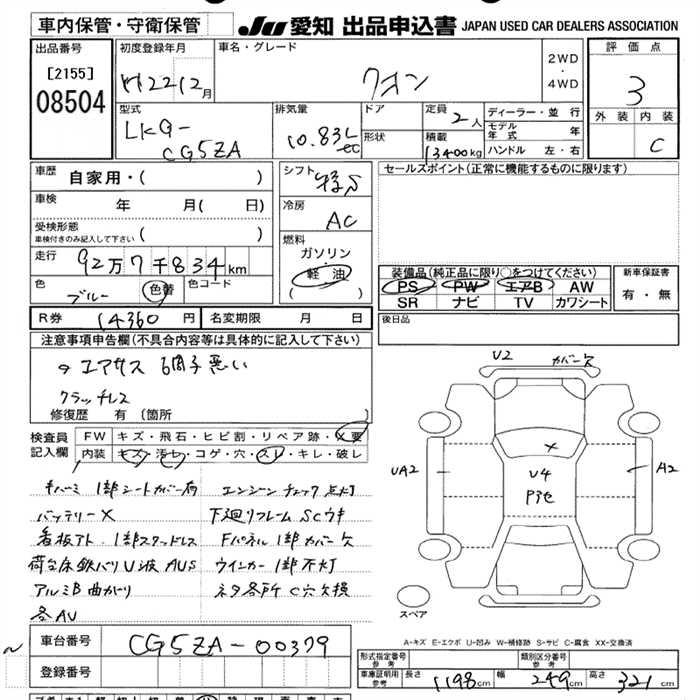 車内保管・守衛保管
JU 愛知 出品申込書 JAPAN USED CAR DEALERS ASSOCIATION
出品番号
[2155]
08504
初度登録年月
H22 12月
車名・グレード
クオン
2WD
・
4WD
評価点
3
外装 内装
C
型式
LKG-
CG5ZA
排気量
10.83L
cc
ドア
形状
定員
2人
積載
13400kg
ディーラー・並行
モデル年式 年
ハンドル 左・右
車歴
自家用・( )
車検
年 月( 日)
受検形態
車検付きのみ記入して下さい ( )
走行
92万7千834km
色
ブルー
色替
色コード
シフト
冷房
AC
燃料
ガソリン
軽油
( )
セールスポイント(正常に機能するものに限ります)
装備品(純正品に限り○をつけてください)
PS PW エアB AW
SR ナビ TV カワシート
新車保証書
有・無
R券 14360円
名変期限 月 日
後日品
注意事項申告欄(不具合内容等は具体的に記入して下さい)
エアサス 6調子悪い
クラッチレス
修復歴 有(箇所 )
検査員
記入欄
FW キズ・飛石・ヒビ割・リペア跡・X要
内装 キズ・汚レ・コゲ・穴・スレ・キレ・破レ
キバミ 1部シートカバー有 エンジンチェック点灯
バッテリーX 下廻りフレームSCウキ
看板アト、1部スタッドレス Fパネル1部カバー欠
荷台床鉄バリU波AUS ウインカー1部不灯
アルミB曲がり ネタ各所C穴欠損
各AU
U2
カバー欠
UA2
A2
X
U4
Pヨセ
スペア
A-キズ E-エクボ U-凹み W-補修跡 S-サビ C-腐食 XX-交換済
車台番号
CG5ZA-00379
登録番号
形式指定番号
参考
類別区分番号
参考
車庫証明用
参考
長さ 1198cm
幅 249cm
高さ 321cm